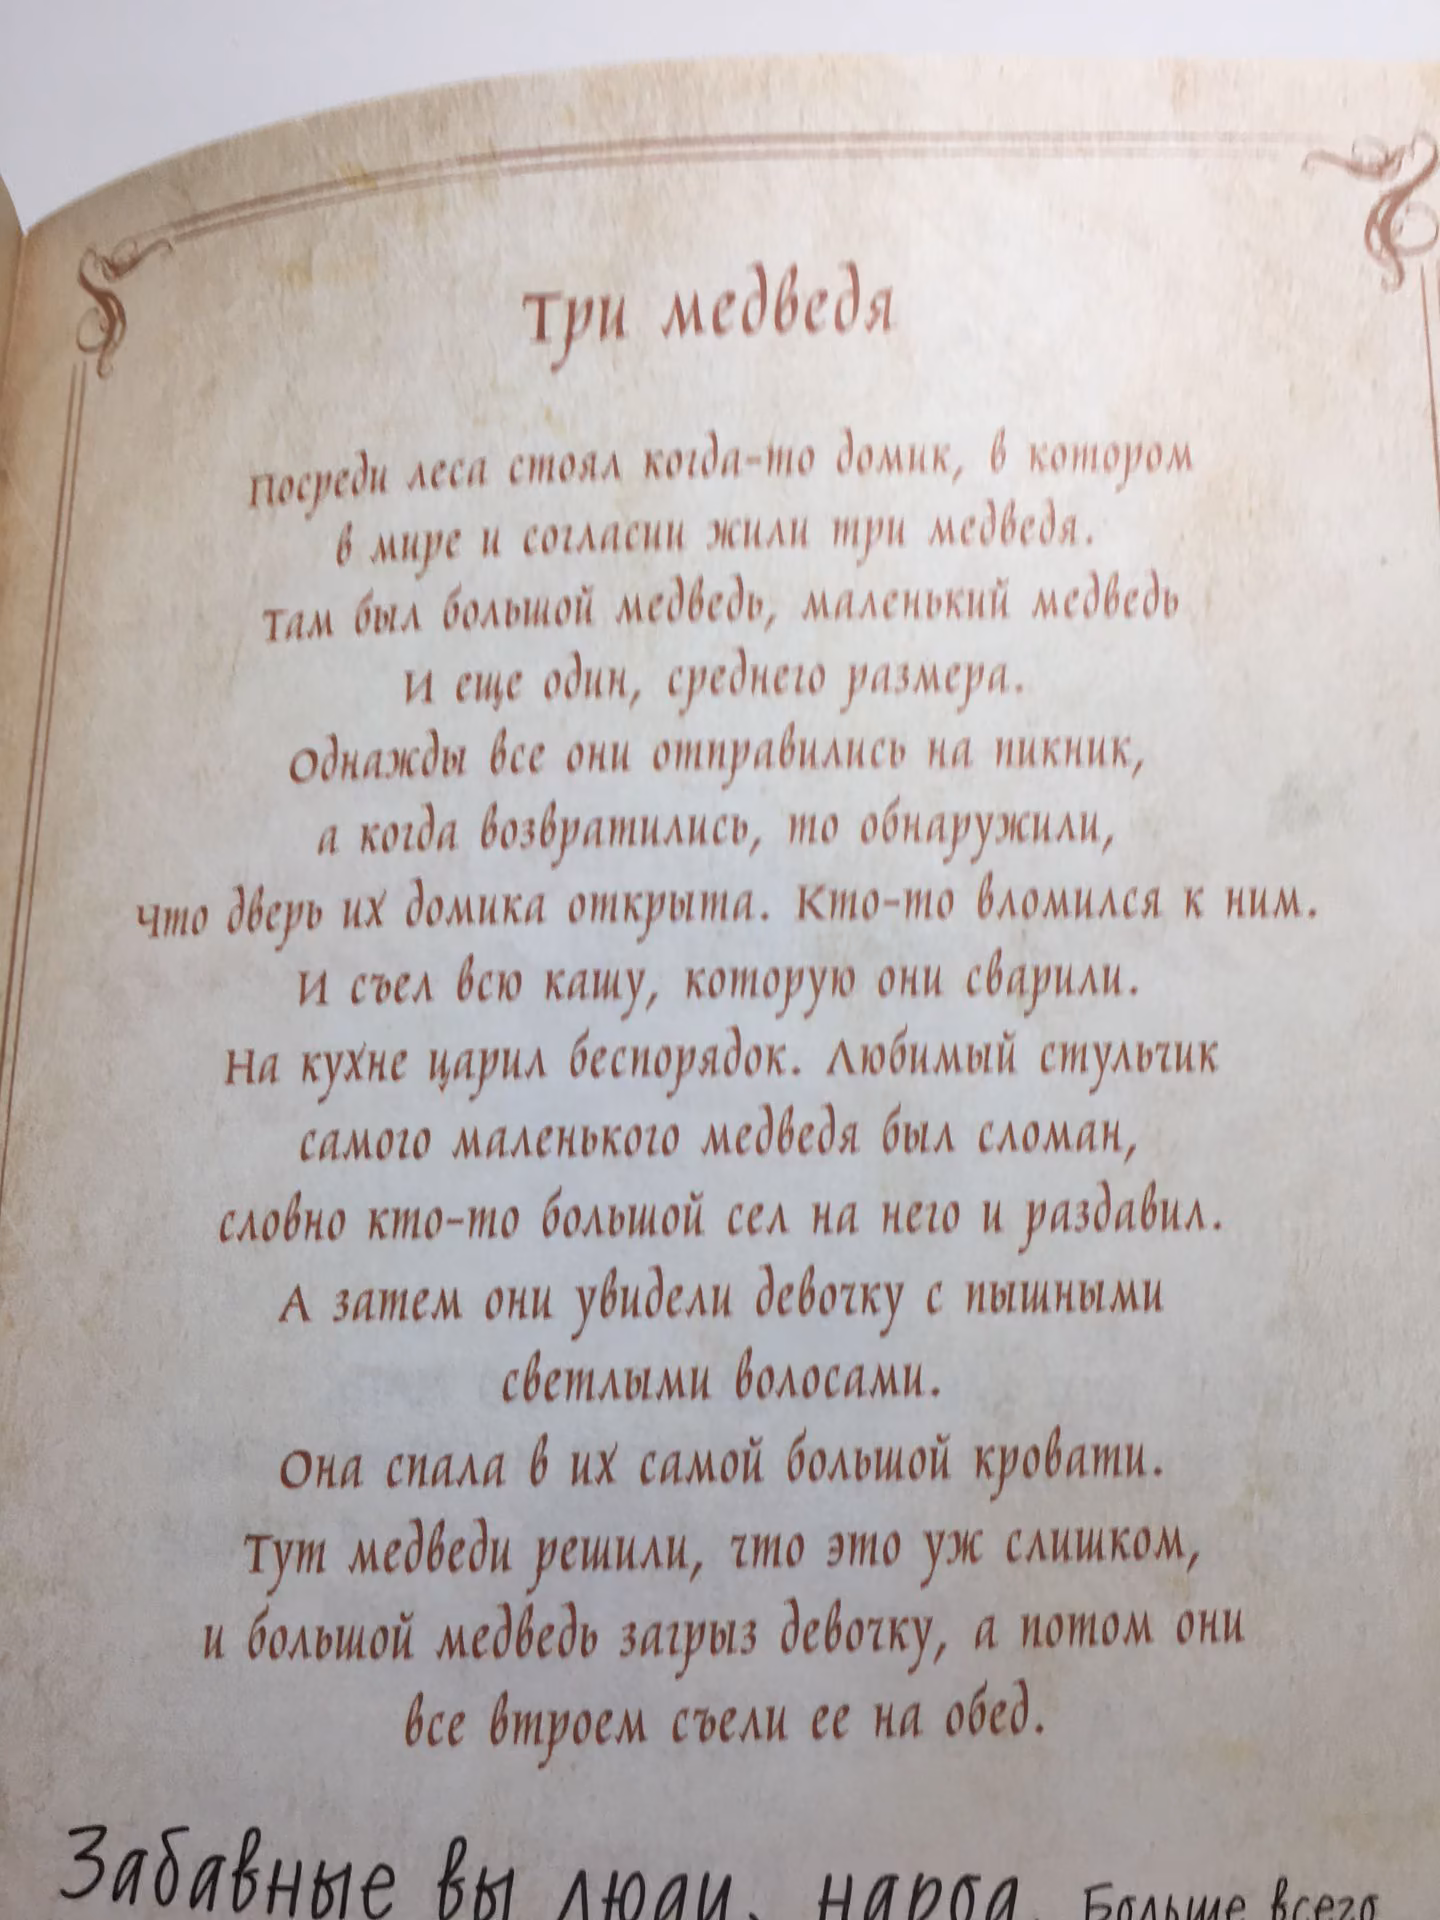 Три медведя
Посреди леса стоял когда-то домик, в котором
в мире и согласии жили три медведя.
Там был большой медведь, маленький медведь
И еще один, среднего размера.
Однажды все они отправились на пикник,
а когда возвратились, то обнаружили,
Что дверь их домика открыта. Кто-то вломился к ним.
И съел всю кашу, которую они сварили.
На кухне царил беспорядок. Любимый стульчик
самого маленького медведя был сломан,
словно кто-то большой сел на него и раздавил.
А затем они увидели девочку с пышными
светлыми волосами.
Она спала в их самой большой кровати.
Тут медведи решили, что это уж слишком,
и большой медведь загрыз девочку, а потом они
все втроем съели ее на обед.
Забавные вы люди, народ. Больше всего